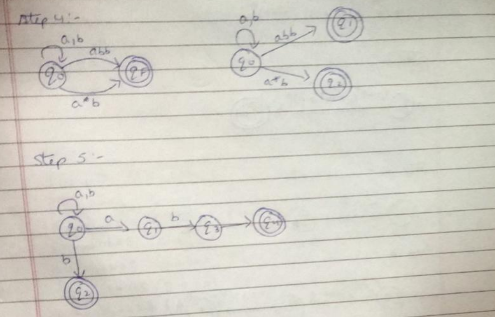 Step 4:-
a,b
abb
q0
qf
a*b
a,b
abb
q1
q0
a*b
q2
Step 5:-
a,b
q0 a q1 b q3
b
q2